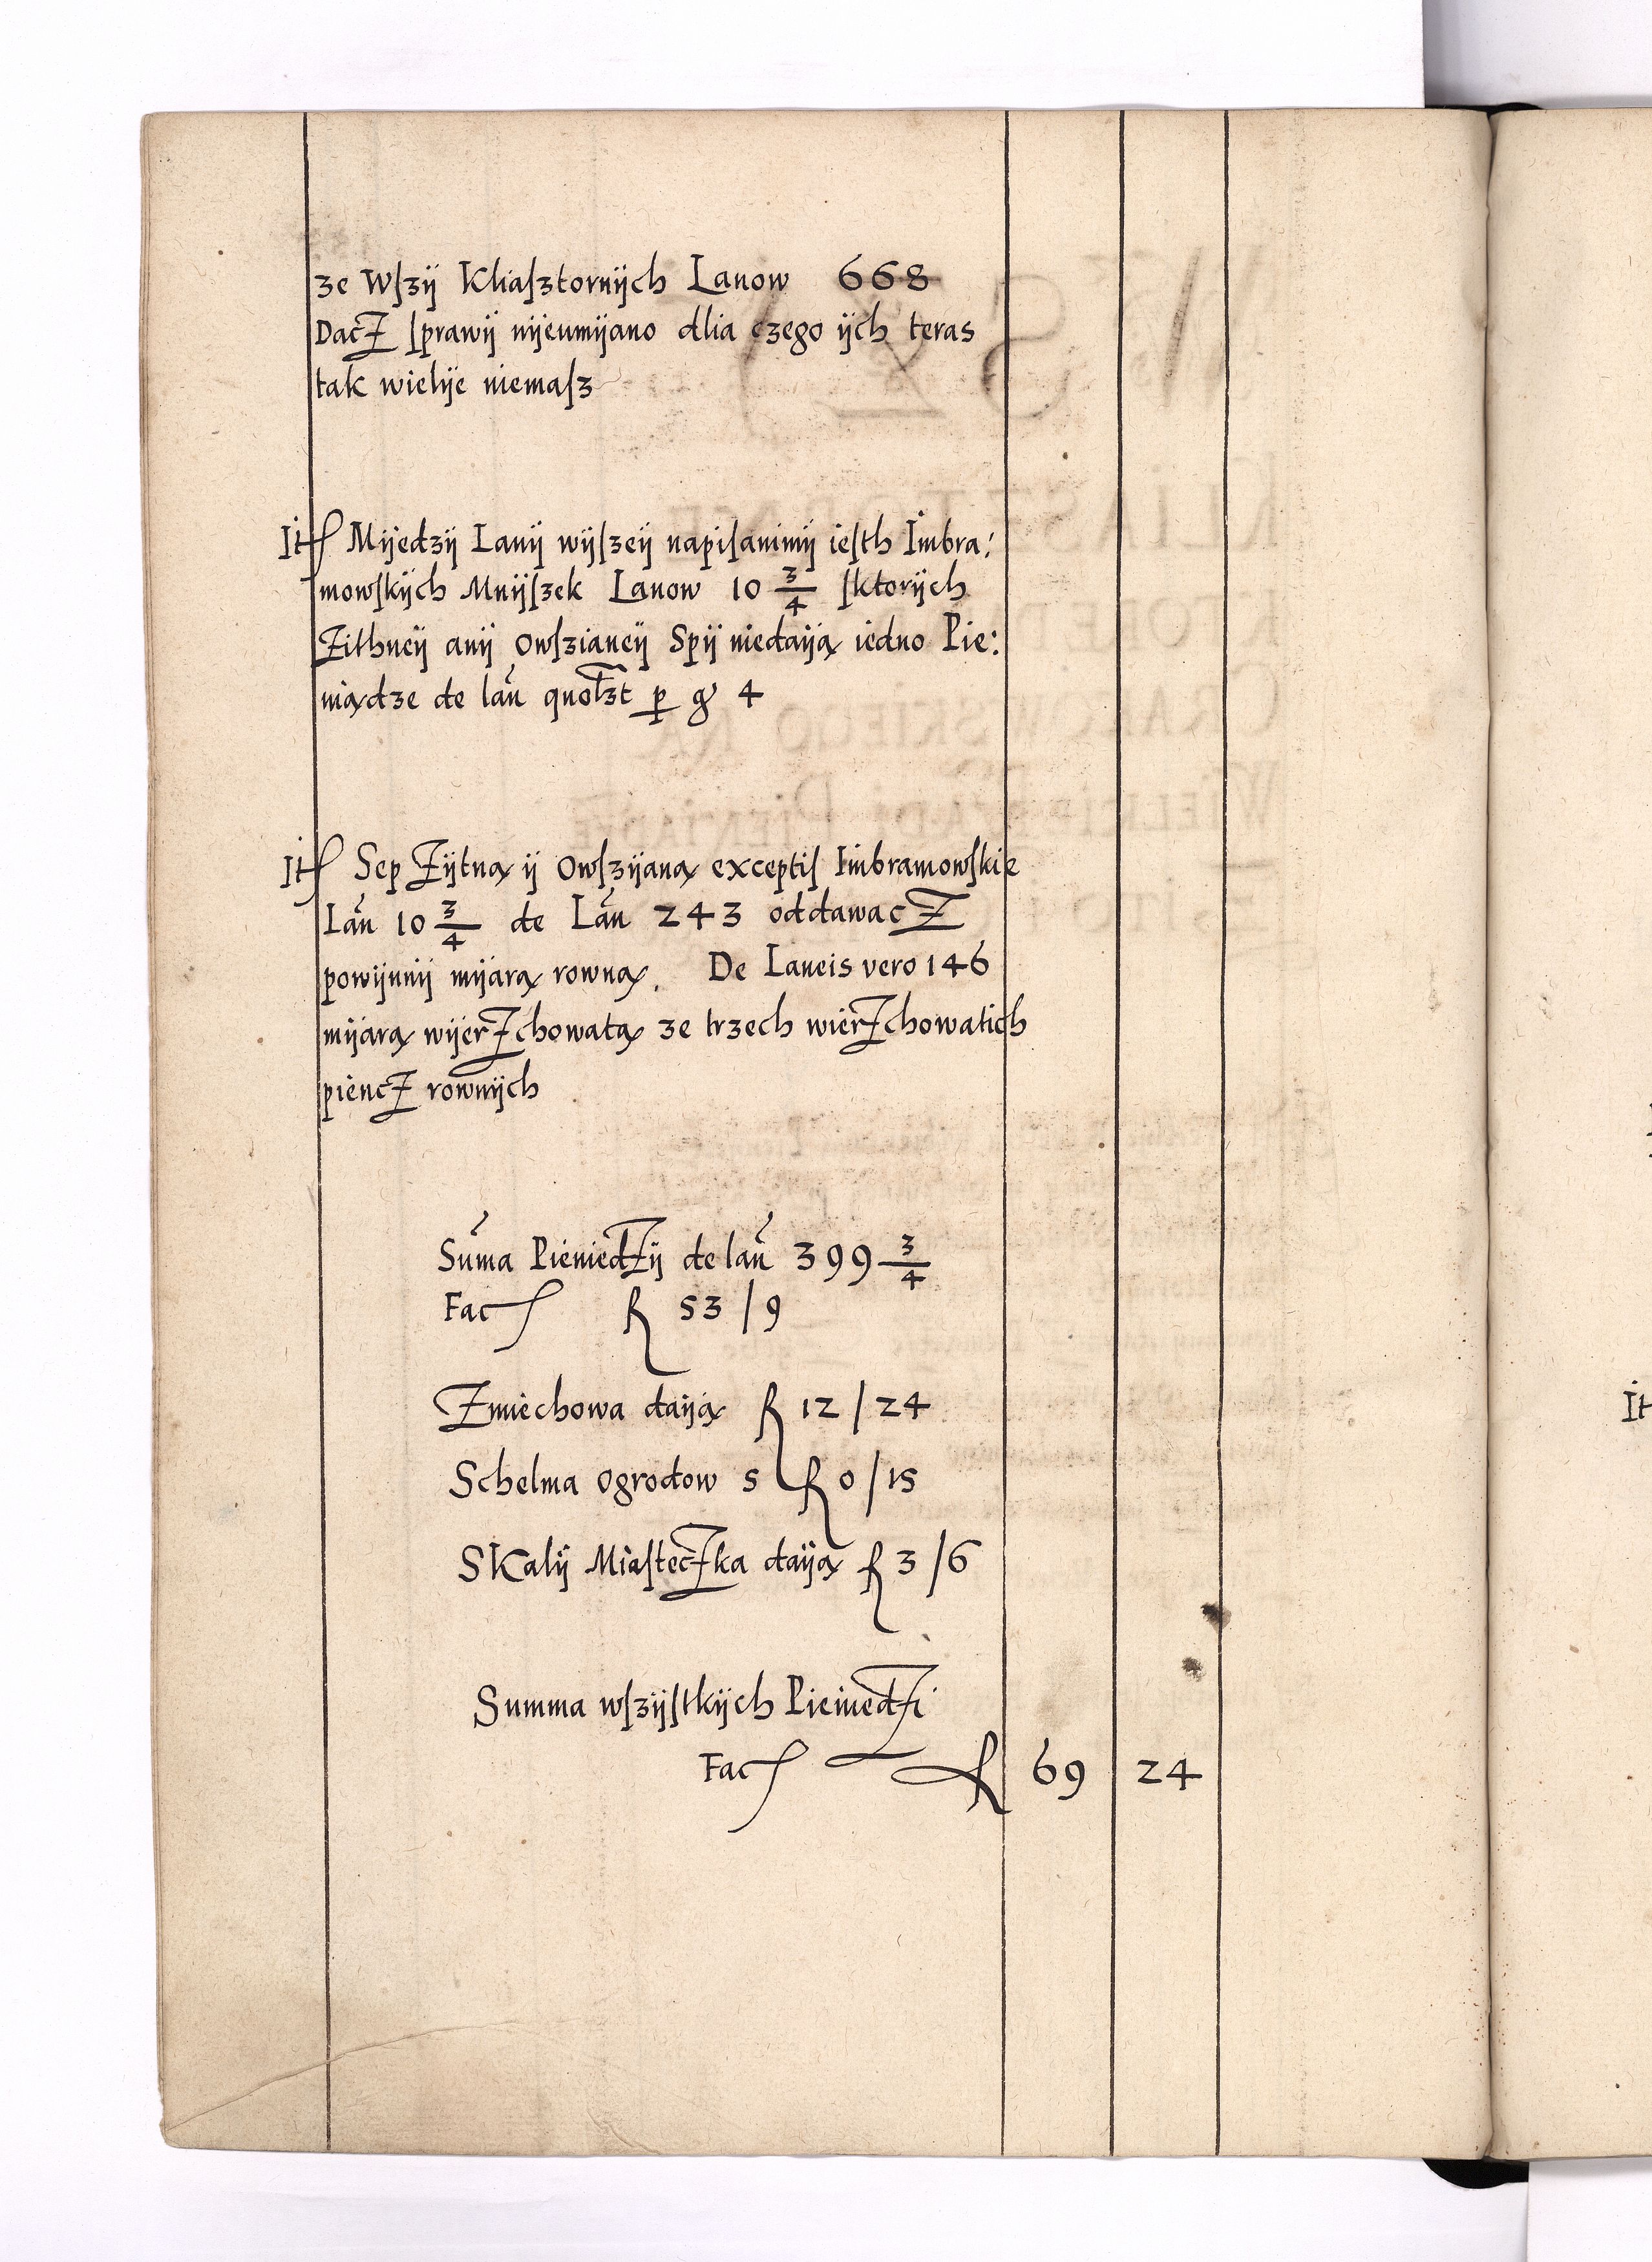 ze Wſzÿ Kliaſztornÿch Lanow 668
Dacż ſprawÿ nÿeumÿano dlia czego ÿch teras
tak wielÿe niemaſz
It̃ Mÿedzÿ Lanÿ wÿſzeÿ napiſanimÿ ieſth Imbra:
mowſkÿch Mnÿſzek Lanow 10 3/4 ſktorÿch
Żithneÿ anÿ Owſzianeÿ Spÿ niedaÿą iedno Pie:
niądze de lañ quolzt ꝑ gͬ 4
It̃ Sep Żÿtną ÿ Owſzÿaną exceptiſ Imbramowſkie
Lañ 10 3/4 de Lañ 243 oddawacż
powÿnnÿ mÿarą rowną. De Laneis vero 146
mÿarą wÿerżchowatą ze trzech wierżchowatich
piencż rownÿch
Sum̃a Pieniedżÿ de lañ 399 3/4
Fac̃ f 53 / 9
Żmiechowa daÿą f 12 / 24
Schelma ogrodow 5 f 0 / 15
Skalÿ Miaſtecżka daÿą f 3 / 6
Summa wſzÿſtkÿch Pieniedżi
Fac̃ f 69 24
It